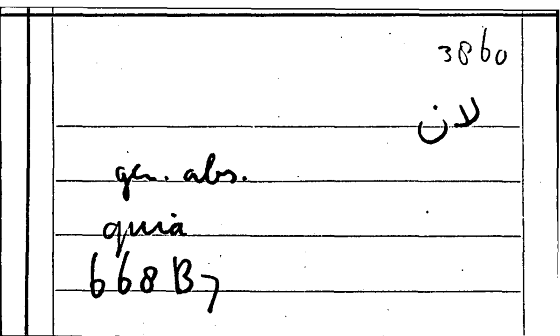 3860
لان
gen. abs.
quia
668 B7